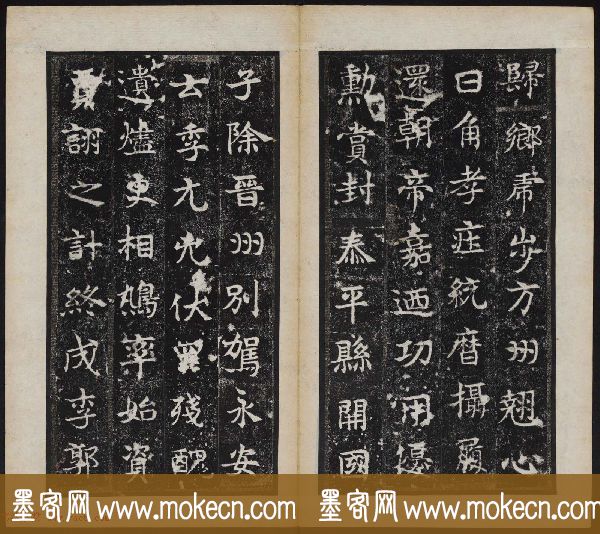 歸鄉虎步方州翹心
日角孝莊統曆攝履
還朝帝嘉迺功用優
勳賞封泰平縣開國
子除晉州別駕永安
云季元兇伏罪殘醜
遺燼更相鳩率始資
賈詡之計終成李郭
墨客网 www.mokecn.com 墨客网 www.mokecn.com